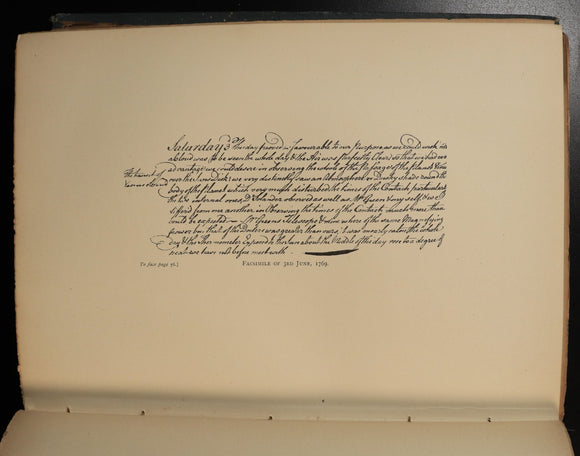 Saturday 3d This day prov'd as favourable to our purpose as we could wish, not
a Cloud was to be seen the whole day & the Air was perfectly Clear, so that we had every
advantage we could desire in observing the whole of the Passage of the Planet Venus
over the Suns disk: we very distinctly saw an Atmosphere or Dusky shade round the
body of the Planet which very much disturbed the times of the Contacts particularly
the two internal ones. Dr Solander observed as well as Mr Green & my self, & we
differ'd from one another in Observing the times of the Contacts much more than
could be expected — Mr Greens Telescope & mine where of the same Magnifying
power but that of the Dr was greater than ours. It was nearly calm the whole
day & the Thermometer expos'd to the Sun about the Middle of the day rose to a degree of
heat we have not before met with —
The transit of
Venus observed
To face page 76.]
Facsimile of 3rd June, 1769.